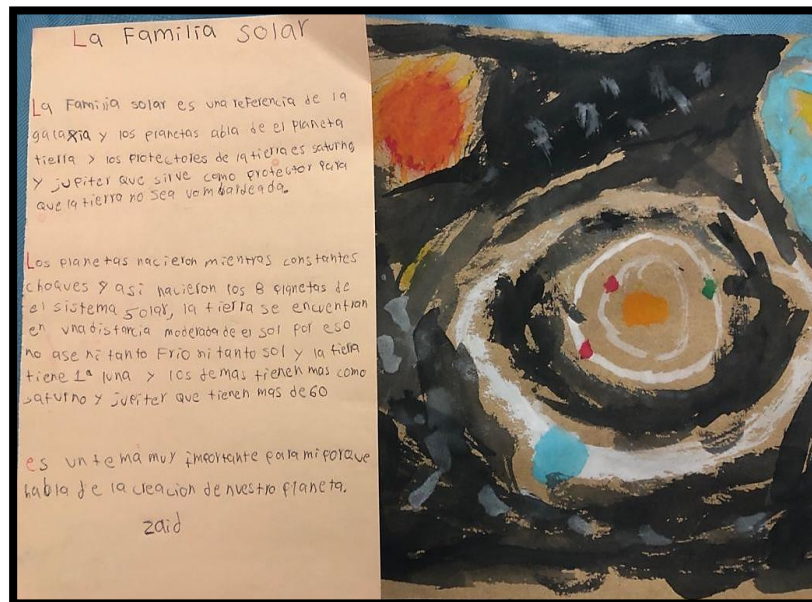 La Familia solar
La Familia solar es una referencia de la
galaxia y los planetas abla de el planeta
tierra y los protectores de la tierra es saturno
y jupiter que sirve como protector para
que la tierra no sea vombardeada.
Los planetas nacieron mientras constantes
choques y asi nacieron los 8 planetas de
el sistema solar, la tierra se encuentran
en una distancia moderada de el sol por eso
no ase ni tanto Frio ni tanto sol y la tierra
tiene 1ª luna y los demas tienen mas como
saturno y jupiter que tienen mas de 60
es un tema muy importante para mi porque
habla de la creacion de nuestro planeta.
zaid